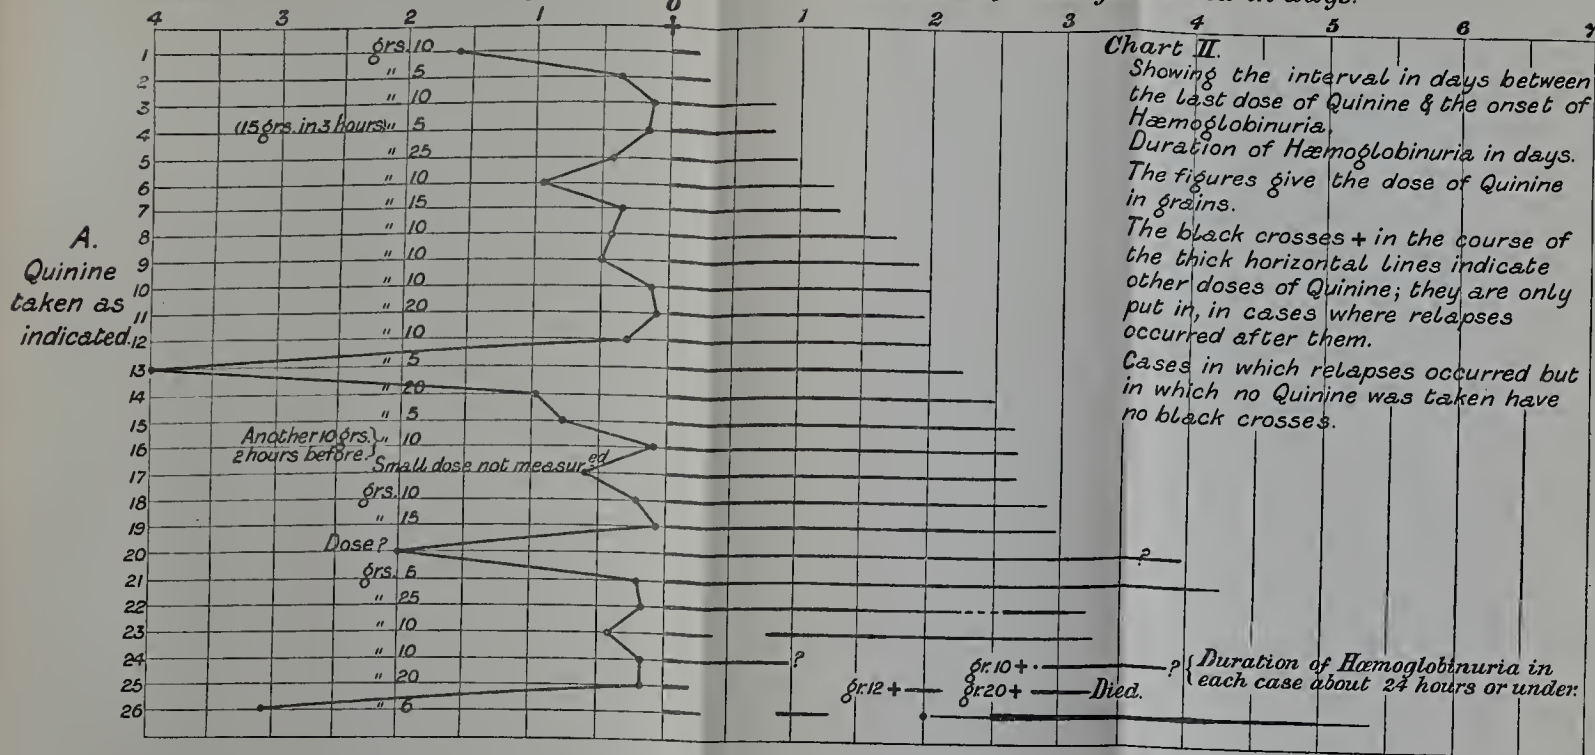 in days.
4 3 2 1 0 1 2 3 4 5 6 7
Chart II.
Showing the interval in days between
the last dose of Quinine & the onset of
Hæmoglobinuria.
Duration of Hæmoglobinuria in days.
The figures give the dose of Quinine
in grains.
The black crosses + in the course of
the thick horizontal lines indicate
other doses of Quinine; they are only
put in, in cases where relapses
occurred after them.
Cases in which relapses occurred but
in which no Quinine was taken have
no black crosses.
A.
Quinine
taken as
indicated.
1 grs. 10
2 " 5
3 " 10
4 (15 grs. in 3 hours) " 5
5 " 25
6 " 10
7 " 15
8 " 10
9 " 10
10 " 10
11 " 20
12 " 10
13 " 5
14 " 20
15 " 5
16 Another 10 grs. } " 10
2 hours before. }
17 Small dose not measured
18 grs. 10
19 " 15
20 Dose ? ?
21 grs. 5
22 " 25
23 " 10
24 " 10 ? gr. 10 + ? { Duration of Hæmoglobinuria in
each case about 24 hours or under.
25 " 20 gr. 12 + gr. 20 + Died.
26 " 6